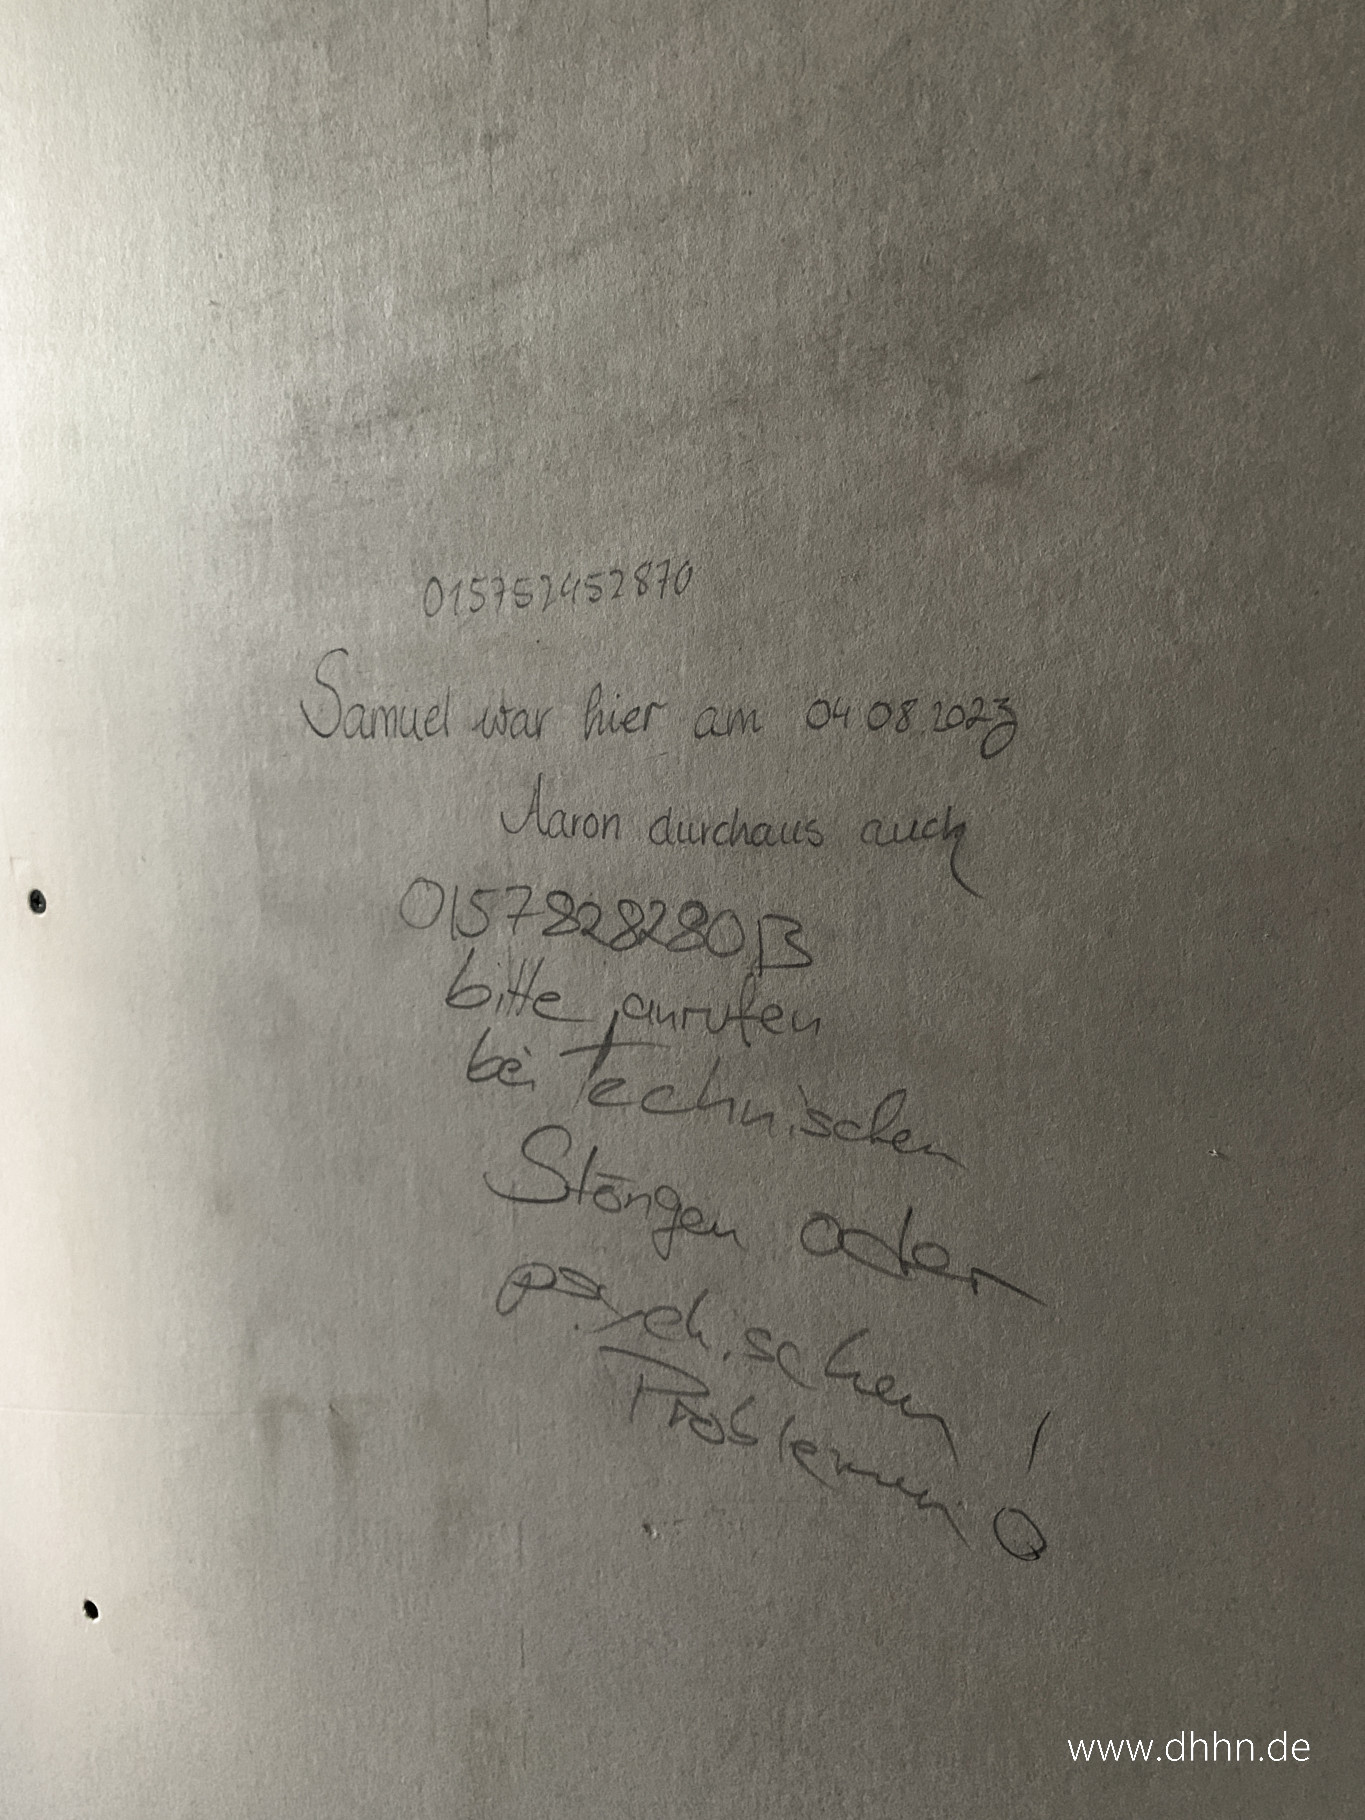 015752452870
Samuel war hier am 04 08.2023
Aaron durchaus auch
015782828013
bitte anrufen
bei Technischen
Störngen oder
psychischen
Problemen!
www.dhhn.de